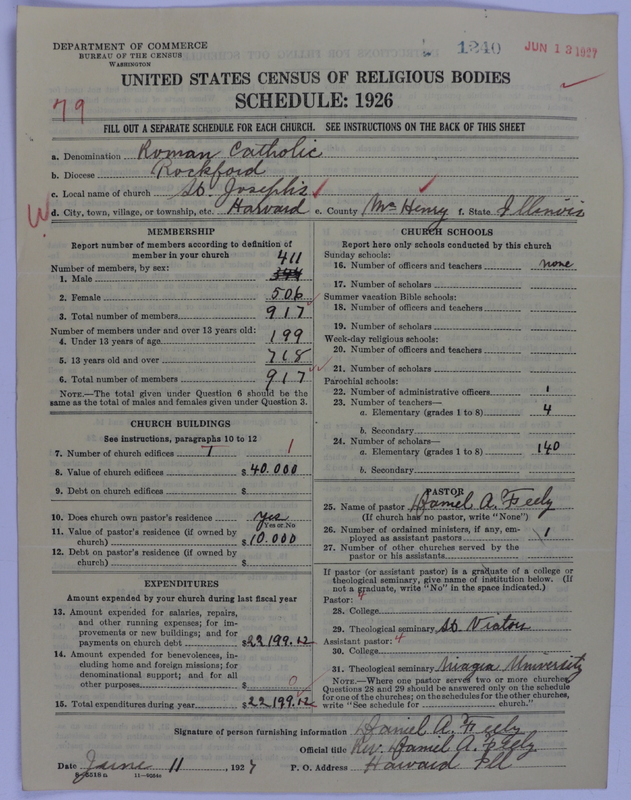 DEPARTMENT OF COMMERCE
BUREAU OF THE CENSUS
WASHINGTON
1240
JUN 13 1927
UNITED STATES CENSUS OF RELIGIOUS BODIES
SCHEDULE: 1926
79
FILL OUT A SEPARATE SCHEDULE FOR EACH CHURCH. SEE INSTRUCTIONS ON THE BACK OF THIS SHEET
a. Denomination Roman Catholic
b. Diocese Rockford
c. Local name of church St. Joseph's
W
d. City, town, village, or township, etc. Harvard e. County McHenry f. State Illinois
MEMBERSHIP
Report number of members according to definition of
member in your church
Number of members, by sex: 411
1. Male 394
2. Female 506
3. Total number of members 917
Number of members under and over 13 years old:
4. Under 13 years of age 199
5. 13 years old and over 718
6. Total number of members 917
NOTE.—The total given under Question 6 should be
the same as the total of males and females given under Question 3.
CHURCH BUILDINGS
See instructions, paragraphs 10 to 12
7. Number of church edifices 1 1
8. Value of church edifices $40.000
9. Debt on church edifices $
10. Does church own pastor's residence Yes
Yes or No
11. Value of pastor's residence (if owned by
church) $10.000
12. Debt on pastor's residence (if owned by
church) $
EXPENDITURES
Amount expended by your church during last fiscal year
13. Amount expended for salaries, repairs,
and other running expenses; for im-
provements or new buildings; and for
payments on church debt $22199.12
14. Amount expended for benevolences, in-
cluding home and foreign missions; for
denominational support; and for all
other purposes $ 0
15. Total expenditures during year $22199.12
CHURCH SCHOOLS
Report here only schools conducted by this church
Sunday schools:
16. Number of officers and teachers none
17. Number of scholars
Summer vacation Bible schools:
18. Number of officers and teachers
19. Number of scholars
Week-day religious schools:
20. Number of officers and teachers
21. Number of scholars
Parochial schools:
22. Number of administrative officers 1
23. Number of teachers—
a. Elementary (grades 1 to 8) 4
b. Secondary
24. Number of scholars—
a. Elementary (grades 1 to 8) 140
b. Secondary
PASTOR
25. Name of pastor Daniel A. Feely
(If church has no pastor, write "None")
26. Number of ordained ministers, if any, em-
ployed as assistant pastors 1
27. Number of other churches served by the
pastor or his assistants
If pastor (or assistant pastor) is a graduate of a college or
theological seminary, give name of institution below. (If
not a graduate, write "No" in the space indicated.)
Pastor: 4
28. College
29. Theological seminary St. Viators
Assistant pastor: 4
30. College
31. Theological seminary Niagra University
NOTE.—Where one pastor served two or more churches,
Questions 28 and 29 should be answered only on the schedule
for one of the churches; on the schedules for the other churches,
write "See schedule for church."
Signature of person furnishing information Daniel A. Feely
Official title Rev. Daniel A. Feely
Date June 11, 1927 P. O. Address Harvard Ill
11—9564a